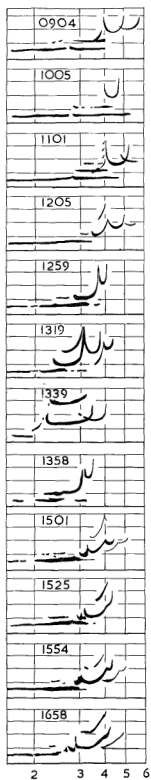 0904
1005
1101
1205
1259
1319
1339
1358
1501
1525
1554
1658
2 3 4 5 6